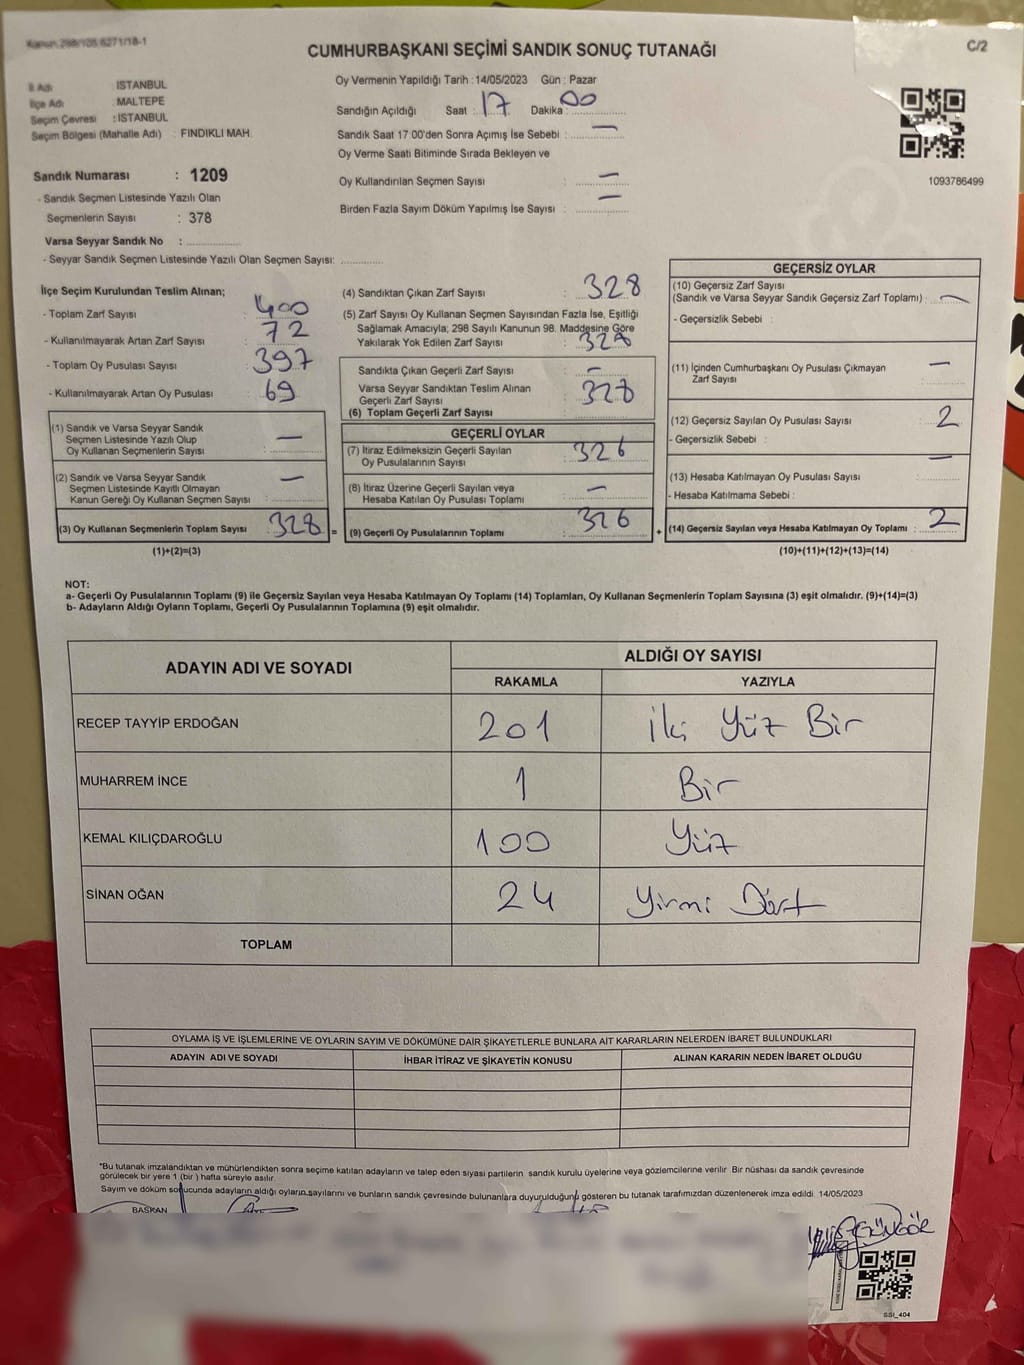 Kanun:298/105,6271/18-1
CUMHURBAŞKANI SEÇİMİ SANDIK SONUÇ TUTANAĞI
C/2
İl Adı : İSTANBUL
İlçe Adı : MALTEPE
Seçim Çevresi : İSTANBUL
Seçim Bölgesi (Mahalle Adı) : FINDIKLI MAH.
Oy Vermenin Yapıldığı Tarih : 14/05/2023 Gün : Pazar
Sandığın Açıldığı Saat : 17 Dakika : 00
Sandık Saat 17:00'den Sonra Açımış İse Sebebi : —
Oy Verme Saati Bitiminde Sırada Bekleyen ve
Oy Kullandırılan Seçmen Sayısı : —
Birden Fazla Sayım Döküm Yapılmış İse Sayısı : —
1093786499
Sandık Numarası : 1209
- Sandık Seçmen Listesinde Yazılı Olan
Seçmenlerin Sayısı : 378
Varsa Seyyar Sandık No :
- Seyyar Sandık Seçmen Listesinde Yazılı Olan Seçmen Sayısı:
İlçe Seçim Kurulundan Teslim Alınan;
- Toplam Zarf Sayısı : 400
- Kullanılmayarak Artan Zarf Sayısı : 72
- Toplam Oy Pusulası Sayısı : 397
- Kullanılmayarak Artan Oy Pusulası : 69
(1) Sandık ve Varsa Seyyar Sandık
Seçmen Listesinde Yazılı Olup
Oy Kullanan Seçmenlerin Sayısı : —
(2) Sandık ve Varsa Seyyar Sandık
Seçmen Listesinde Kayıtlı Olmayan
Kanun Gereği Oy Kullanan Seçmen Sayısı : —
(3) Oy Kullanan Seçmenlerin Toplam Sayısı : 328
(1)+(2)=(3)
(4) Sandıktan Çıkan Zarf Sayısı : 328
(5) Zarf Sayısı Oy Kullanan Seçmen Sayısından Fazla İse, Eşitliği
Sağlamak Amacıyla; 298 Sayılı Kanunun 98. Maddesine Göre
Yakılarak Yok Edilen Zarf Sayısı : 328
Sandıkta Çıkan Geçerli Zarf Sayısı : —
Varsa Seyyar Sandıktan Teslim Alınan
Geçerli Zarf Sayısı : 328
(6) Toplam Geçerli Zarf Sayısı :
GEÇERLİ OYLAR
(7) İtiraz Edilmeksizin Geçerli Sayılan
Oy Pusulalarının Sayısı : 326
(8) İtiraz Üzerine Geçerli Sayılan veya
Hesaba Katılan Oy Pusulası Toplamı : —
= (9) Geçerli Oy Pusulalarının Toplamı : 326
GEÇERSİZ OYLAR
(10) Geçersiz Zarf Sayısı
(Sandık ve Varsa Seyyar Sandık Geçersiz Zarf Toplamı) : —
- Geçersizlik Sebebi :
(11) İçinden Cumhurbaşkanı Oy Pusulası Çıkmayan
Zarf Sayısı : —
(12) Geçersiz Sayılan Oy Pusulası Sayısı : 2
- Geçersizlik Sebebi :
(13) Hesaba Katılmayan Oy Pusulası Sayısı : —
- Hesaba Katılmama Sebebi :
+ (14) Geçersiz Sayılan veya Hesaba Katılmayan Oy Toplamı : 2
(10)+(11)+(12)+(13)=(14)
NOT:
a- Geçerli Oy Pusulalarının Toplamı (9) ile Geçersiz Sayılan veya Hesaba Katılmayan Oy Toplamı (14) Toplamları, Oy Kullanan Seçmenlerin Toplam Sayısına (3) eşit olmalıdır. (9)+(14)=(3)
b- Adayların Aldığı Oyların Toplamı, Geçerli Oy Pusulalarının Toplamına (9) eşit olmalıdır.
ADAYIN ADI VE SOYADI
ALDIĞI OY SAYISI
RAKAMLA YAZIYLA
RECEP TAYYİP ERDOĞAN 201 İki Yüz Bir
MUHARREM İNCE 1 Bir
KEMAL KILIÇDAROĞLU 100 Yüz
SİNAN OĞAN 24 Yirmi Dört
TOPLAM
OYLAMA İŞ VE İŞLEMLERİNE VE OYLARIN SAYIM VE DÖKÜMÜNE DAİR ŞİKAYETLERLE BUNLARA AİT KARARLARIN NELERDEN İBARET BULUNDUKLARI
ADAYIN ADI VE SOYADI İHBAR İTİRAZ VE ŞİKAYETİN KONUSU ALINAN KARARIN NEDEN İBARET OLDUĞU
*Bu tutanak imzalandıktan ve mühürlendikten sonra seçime katılan adayların ve talep eden siyasi partilerin sandık kurulu üyelerine veya gözlemcilerine verilir. Bir nüshası da sandık çevresinde
görülecek bir yere 1 (bir) hafta süreyle asılır.
Sayım ve döküm sonucunda adayların aldığı oyların sayılarını ve bunların sandık çevresinde bulunanlara duyurulduğunu gösteren bu tutanak tarafımızdan düzenlenerek imza edildi. 14/05/2023
BAŞKAN
GÜNGÖR
SSI_404